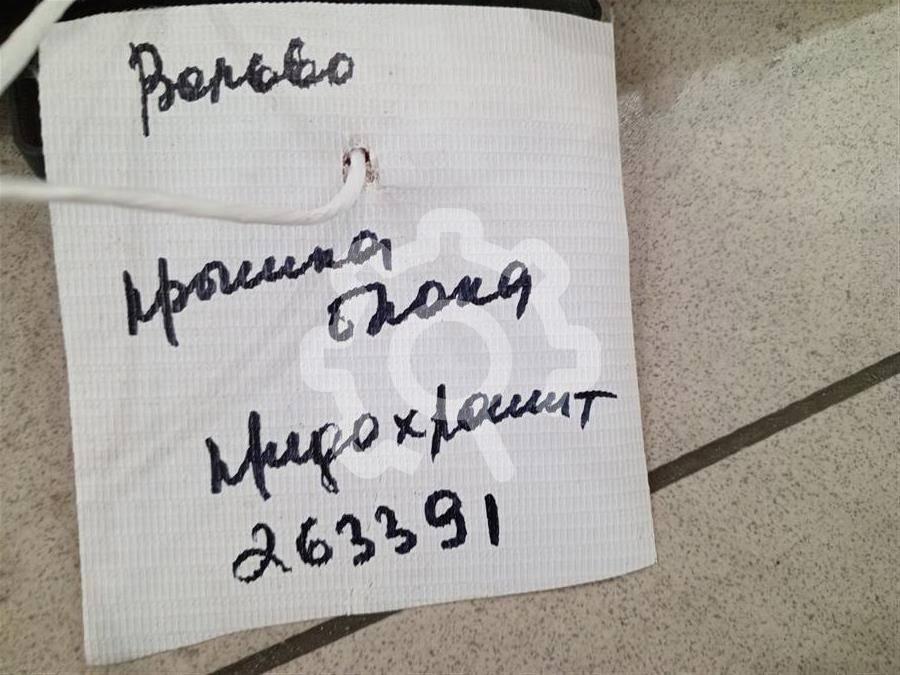 Вольво
крышка
блока
предохранит
263391